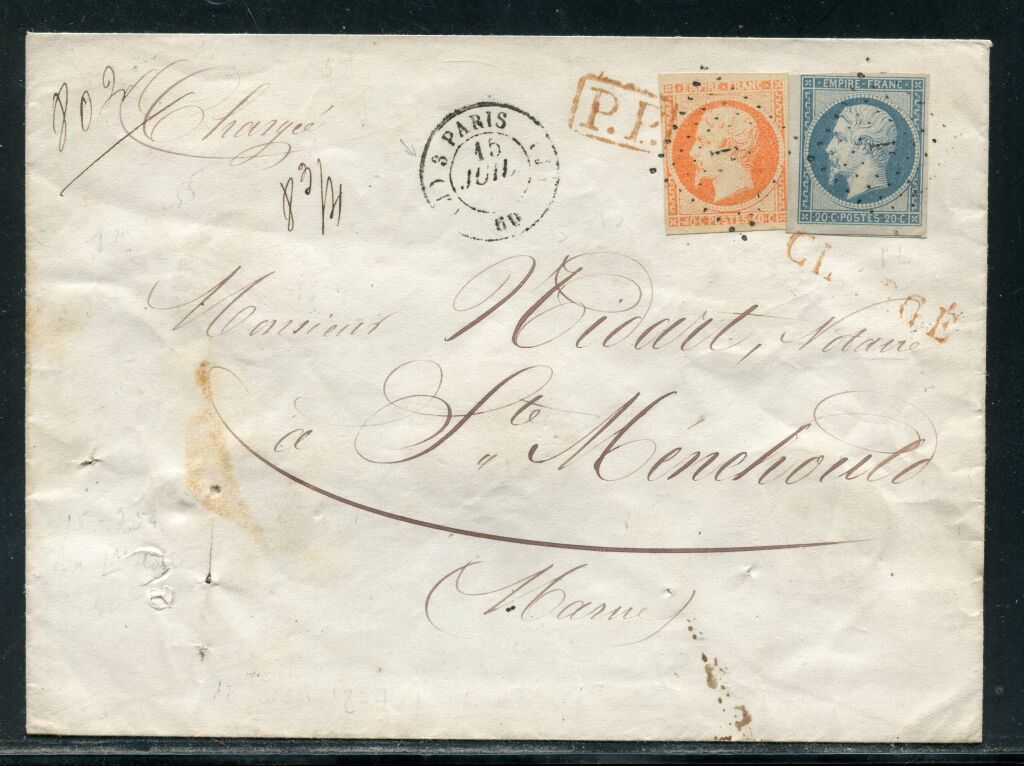 Chargé
PARIS
15
JUIL.
60
P.P.
EMPIRE FRANC
40 C POSTES 40 C
EMPIRE·FRANC·
20·C·POSTES·20·C
Monsieur Nidart, Notaire
à Ste Ménehould
(Marne)